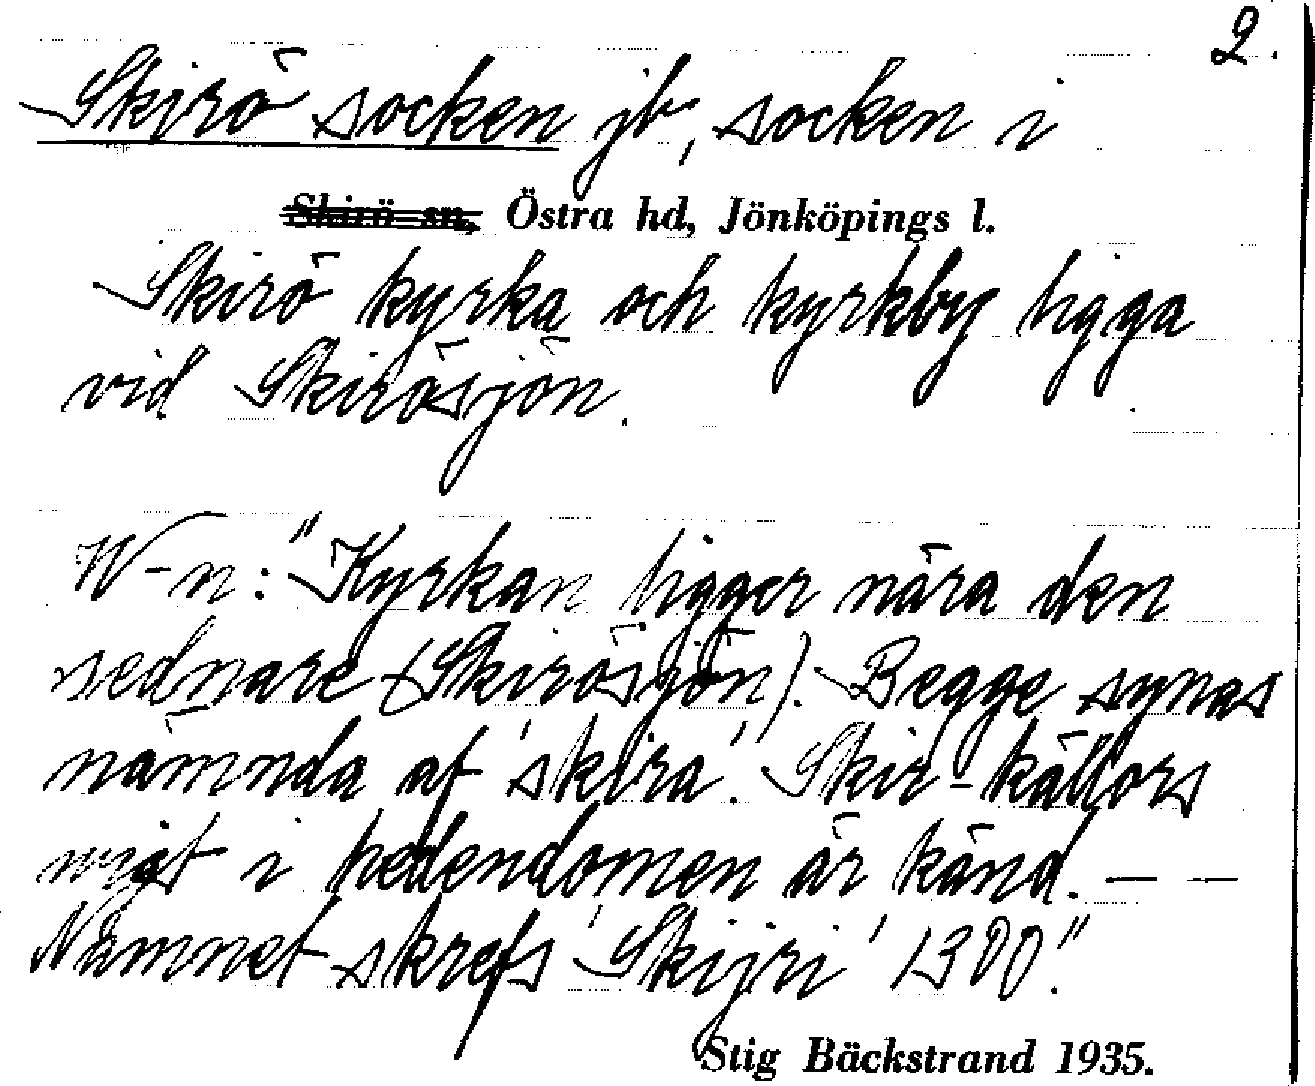 2.
Skirö socken jb, socken i
Skirö sn, Östra hd, Jönköpings l.
Skirö kyrka och kyrkby ligga
vid Skirösjön.
W-n: "Kyrkan ligger nära den
sednare (Skirösjön). Begge synas
nämnda af 'skira'. Skir-källors
vigt i hedendomen är känd. — —
Namnet skrefs 'Skijri' 1300."
Stig Bäckstrand 1935.